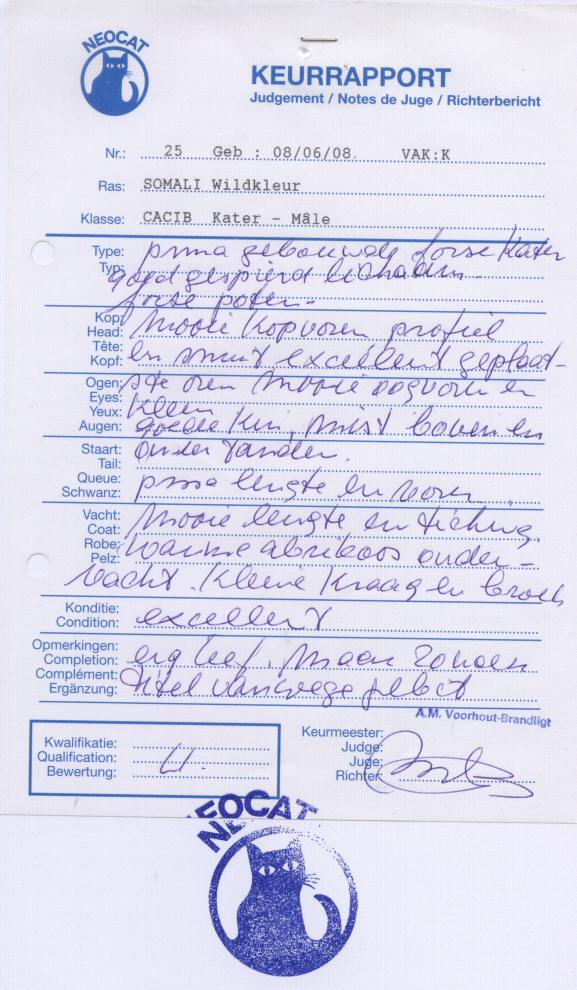 NEOCAT
KEURRAPPORT
Judgement / Notes de Juge / Richterbericht
Nr.: 25 Geb : 08/06/08. VAK:K
Ras: SOMALI Wildkleur
Klasse: CACIB Kater - Mâle
Type: prima gebouwde forse Kater
Typ: goed gespierd lichaam
forse poten -
Kop: Mooie Kopvorm profiel
Head:
Tête: en snuit excellent geplaat-
Kopf:
Ogen: ste oren Mooie oogvorm en
Eyes:
Yeux: Kleur
Augen: goede Kin, mist boven en
Staart: onder tanden.
Tail:
Queue: prima lengte en vorm.
Schwanz:
Vacht: Mooie lengte en ticking.
Coat:
Robe: warme abrikoos onder-
Pelz:
vacht. Kleine Kraag en broek
Konditie:
Condition: excellent
Opmerkingen:
Completion: erg lief. Maar zonder
Complément:
Ergänzung: titel vanwege gebit
A.M. Voorhout-Brandligt
Kwalifikatie:
Qualification: U.
Bewertung:
Keurmeester:
Judge:
Juge:
Richter:
NEOCAT